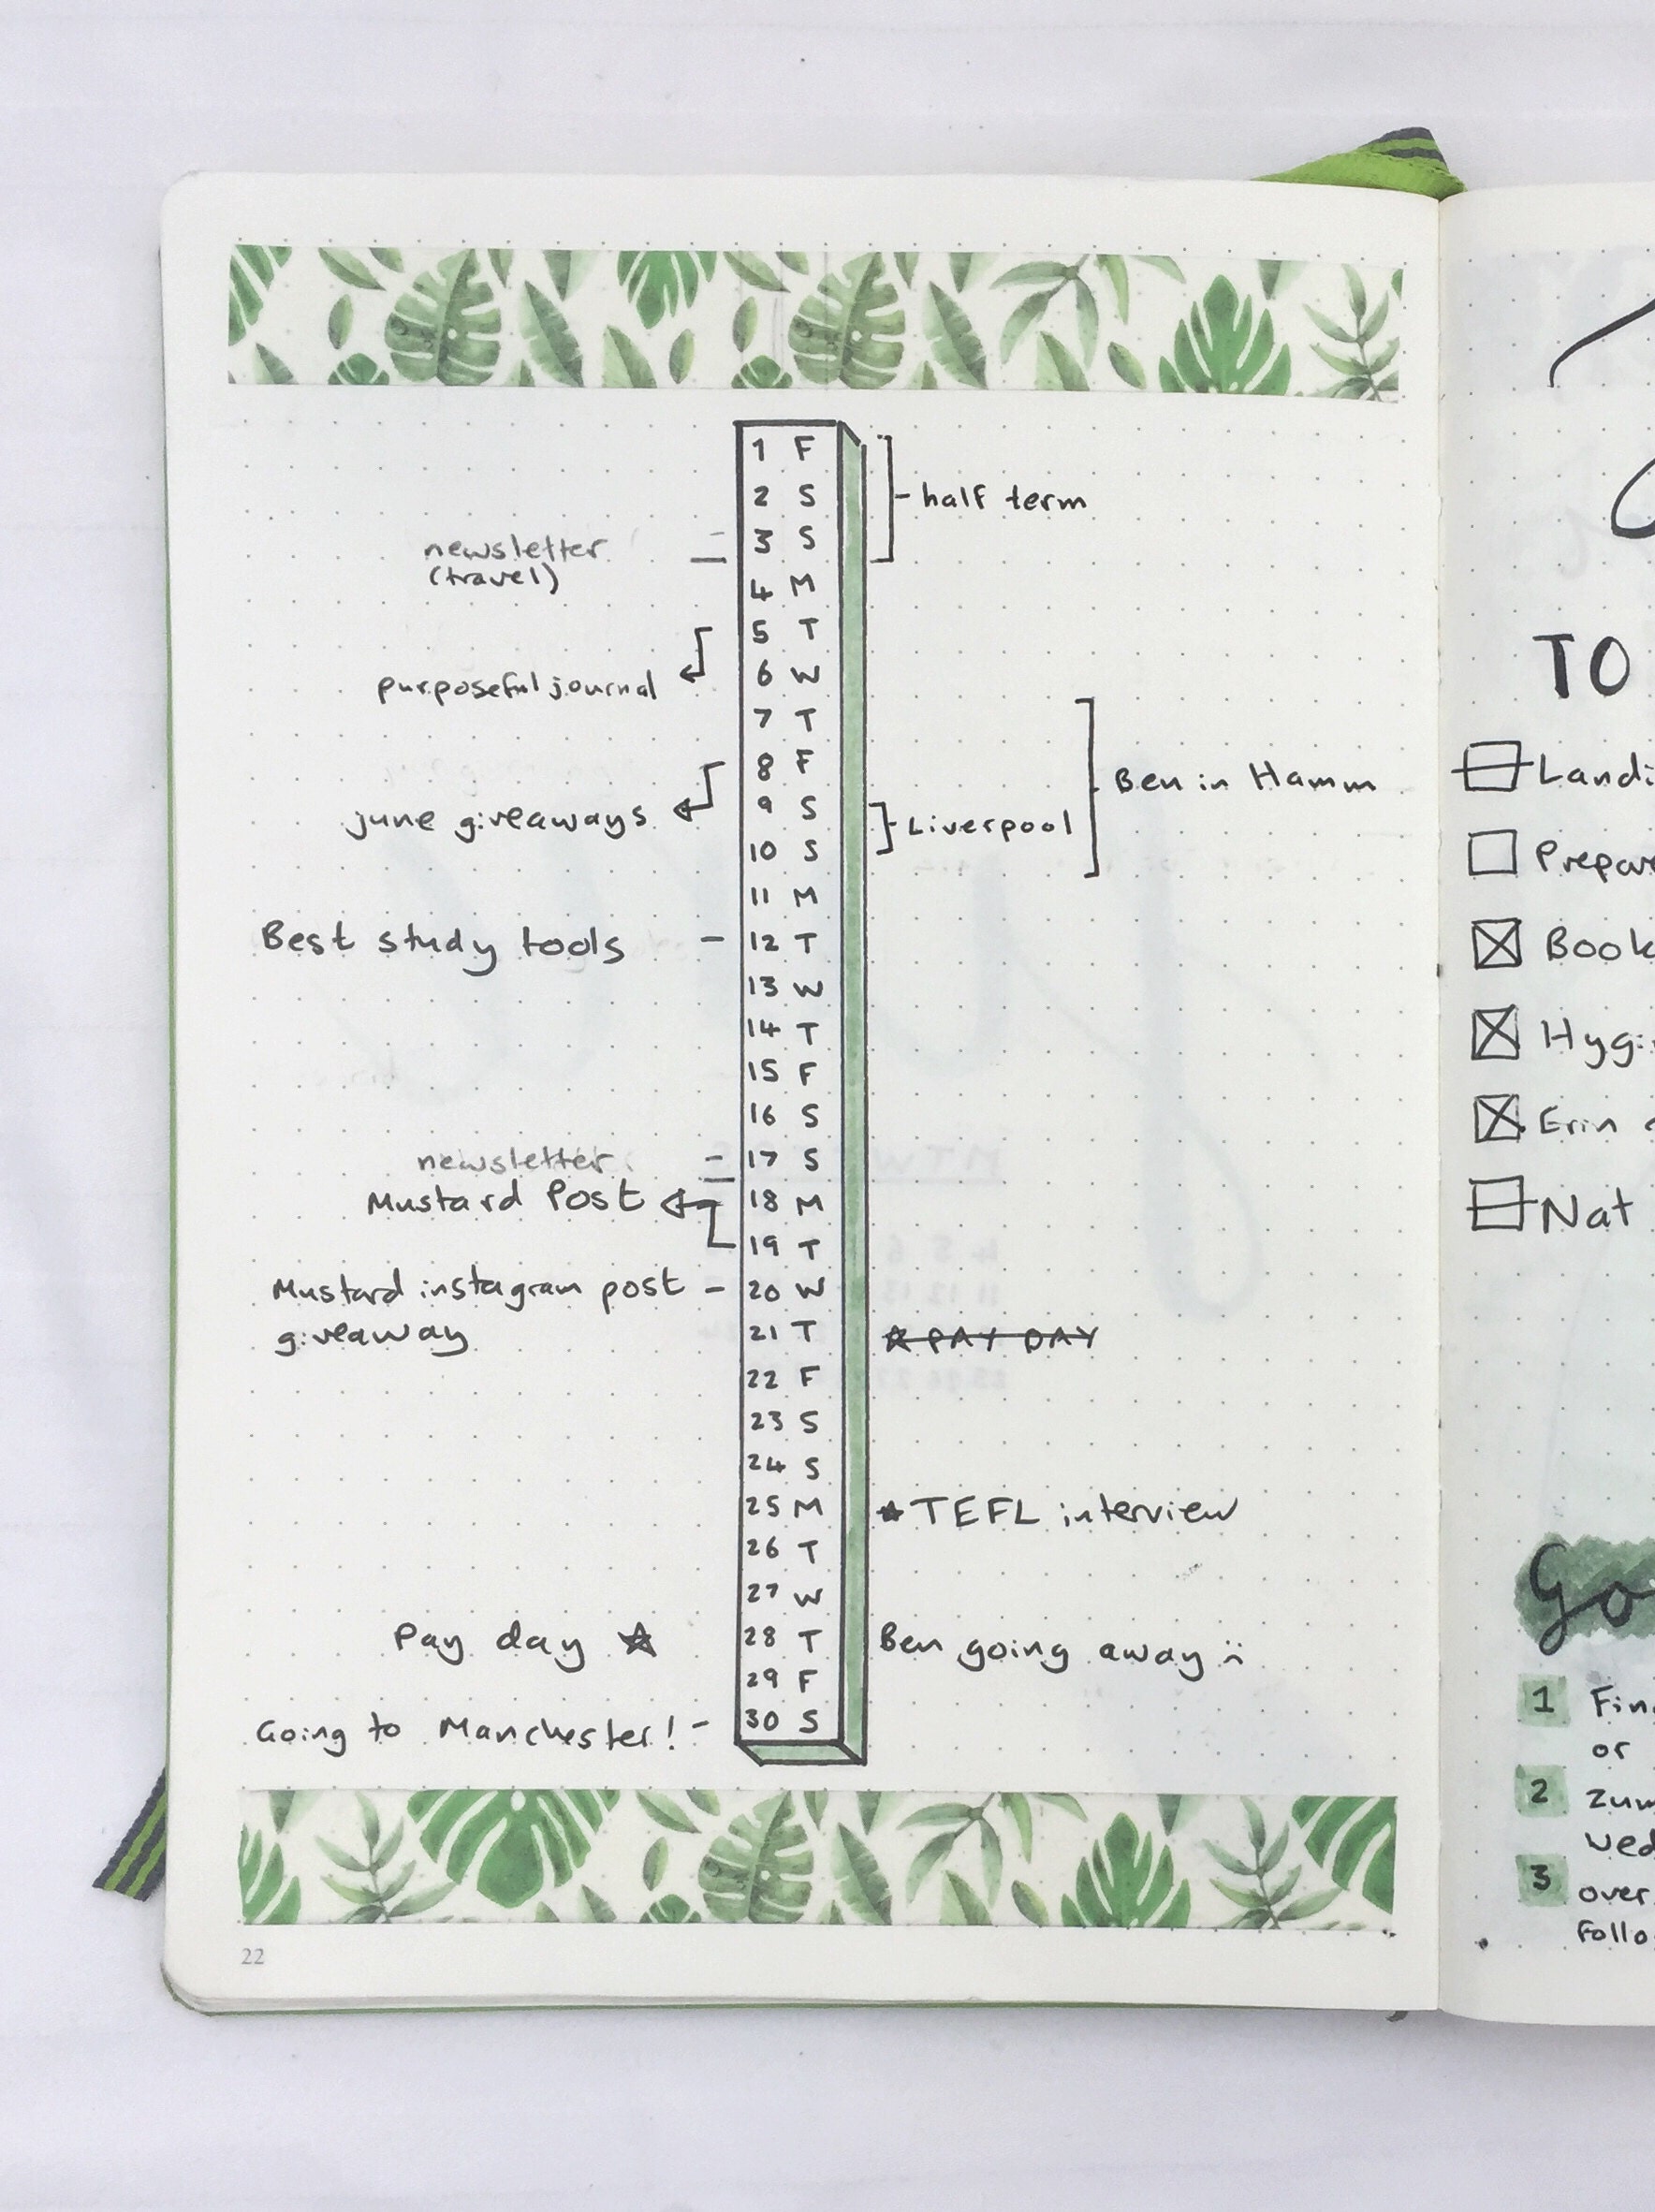 1 F
2 S
half term
newsletter
3 S
(travel)
4 M
5 T
purposeful journal
6 W
7 T
8 F
Ben in Hamm
june giveaways
9 S
Liverpool
10 S
11 M
Best study tools - 12 T
13 W
14 T
15 F
16 S
newsletter - 17 S
Mustard Post
18 M
19 T
Mustard instagram post - 20 W
giveaway
21 T
PAY DAY
22 F
23 S
24 S
25 M
TEFL interview
26 T
27 W
Pay day
28 T
Ben going away :(
29 F
Going to Manchester! - 30 S
22
TO
Landi
Prepar
Book
Hygi
Erin
Nat
Go
1 Fin
or
2 Zum
wed
3 over
follo